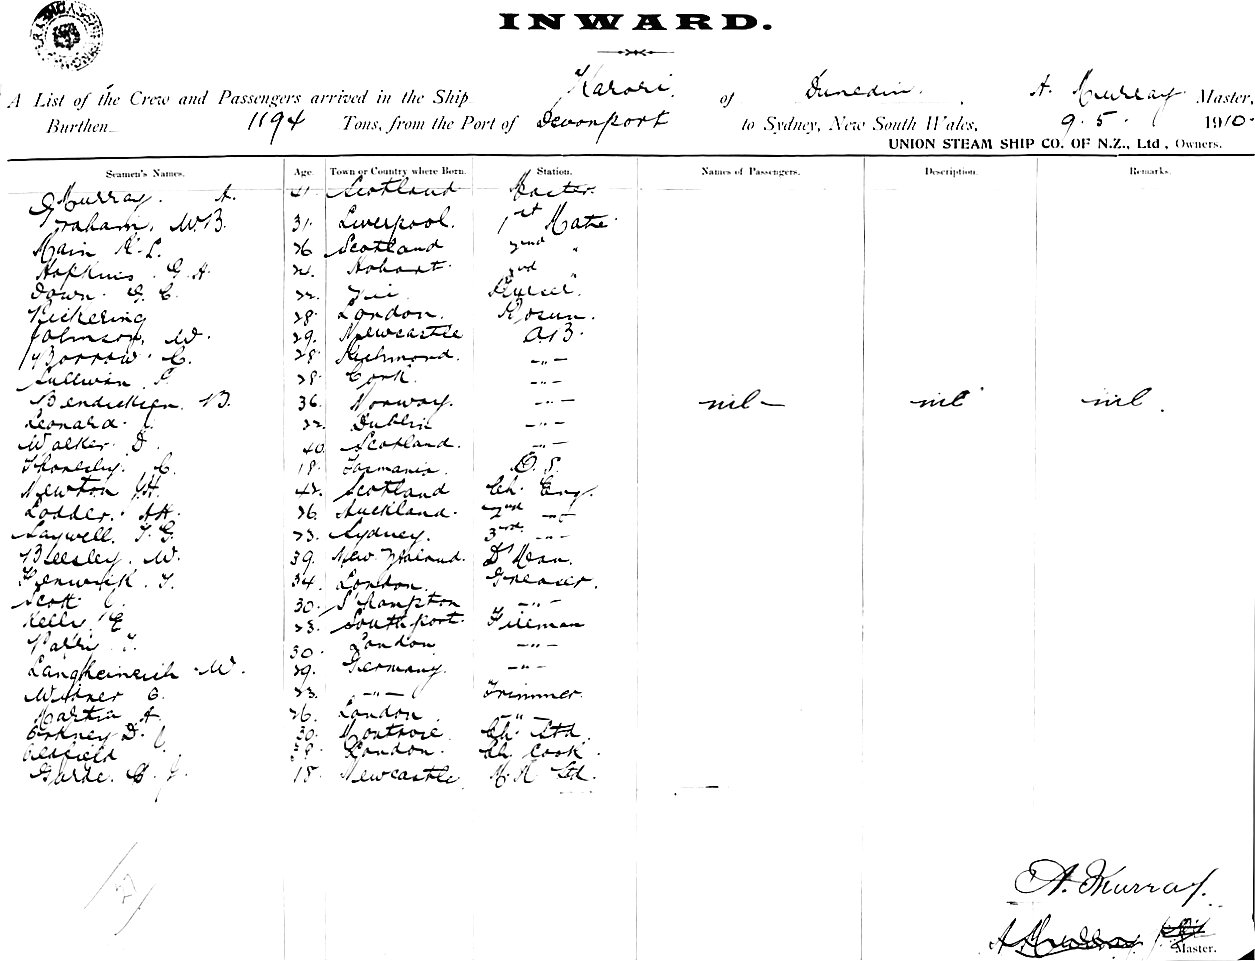 INWARD.
A List of the Crew and Passengers arrived in the Ship Karori. of Dunedin. A. Murray. Master,
Burthen 1194 Tons, from the Port of Devonport to Sydney, New South Wales, 9.5. 1910.
UNION STEAM SHIP CO. OF N.Z., Ltd, Owners.
Seamen's Names. Age. Town or Country where Born. Station. Names of Passengers. Description. Remarks.
Murray. A. 41 Scotland Master.
Graham. W.B. 31. Liverpool. 1st Mate
Main 26 Scotland 2nd "
Hopkins. G.H. Hobart. 3rd "
Down. G. C. 22.
Pickering 28. London. Bosun.
Johnson, W. 29. Newcastle A.B.
Morrow. C. 28. Richmond. -"-
Sullivan 28. Cork. -"-
Bendicksen. B. 36. Norway. -"- nil- nil nil.
Leonard 22. Dublin -"-
Walker. D. 40. Scotland. -"-
C. 18. Tasmania. O.S.
Newton 42. Scotland Ch. Eng.
Lodder. 26. Auckland. 2nd -"-
Saywell. T. G. 23. Sydney. 3rd -"-
Beesley. W. 39. New Zealand. D'Kman.
Fenwick. T. 34. London. Greaser.
Scott 30. S'hampton -"-
Kelly E 23. Southport. Fireman
30. London -"-
Langheinrich W. 29. Germany. -"-
23. -"- Trimmer.
Martin A 26. London. -"-
Orkney D. 30. Montrose. Ch. Std.
Oldfield London. Ch. Cook.
18. Newcastle. M.R. Std.
27
A. Murray.
A Murray
Master.